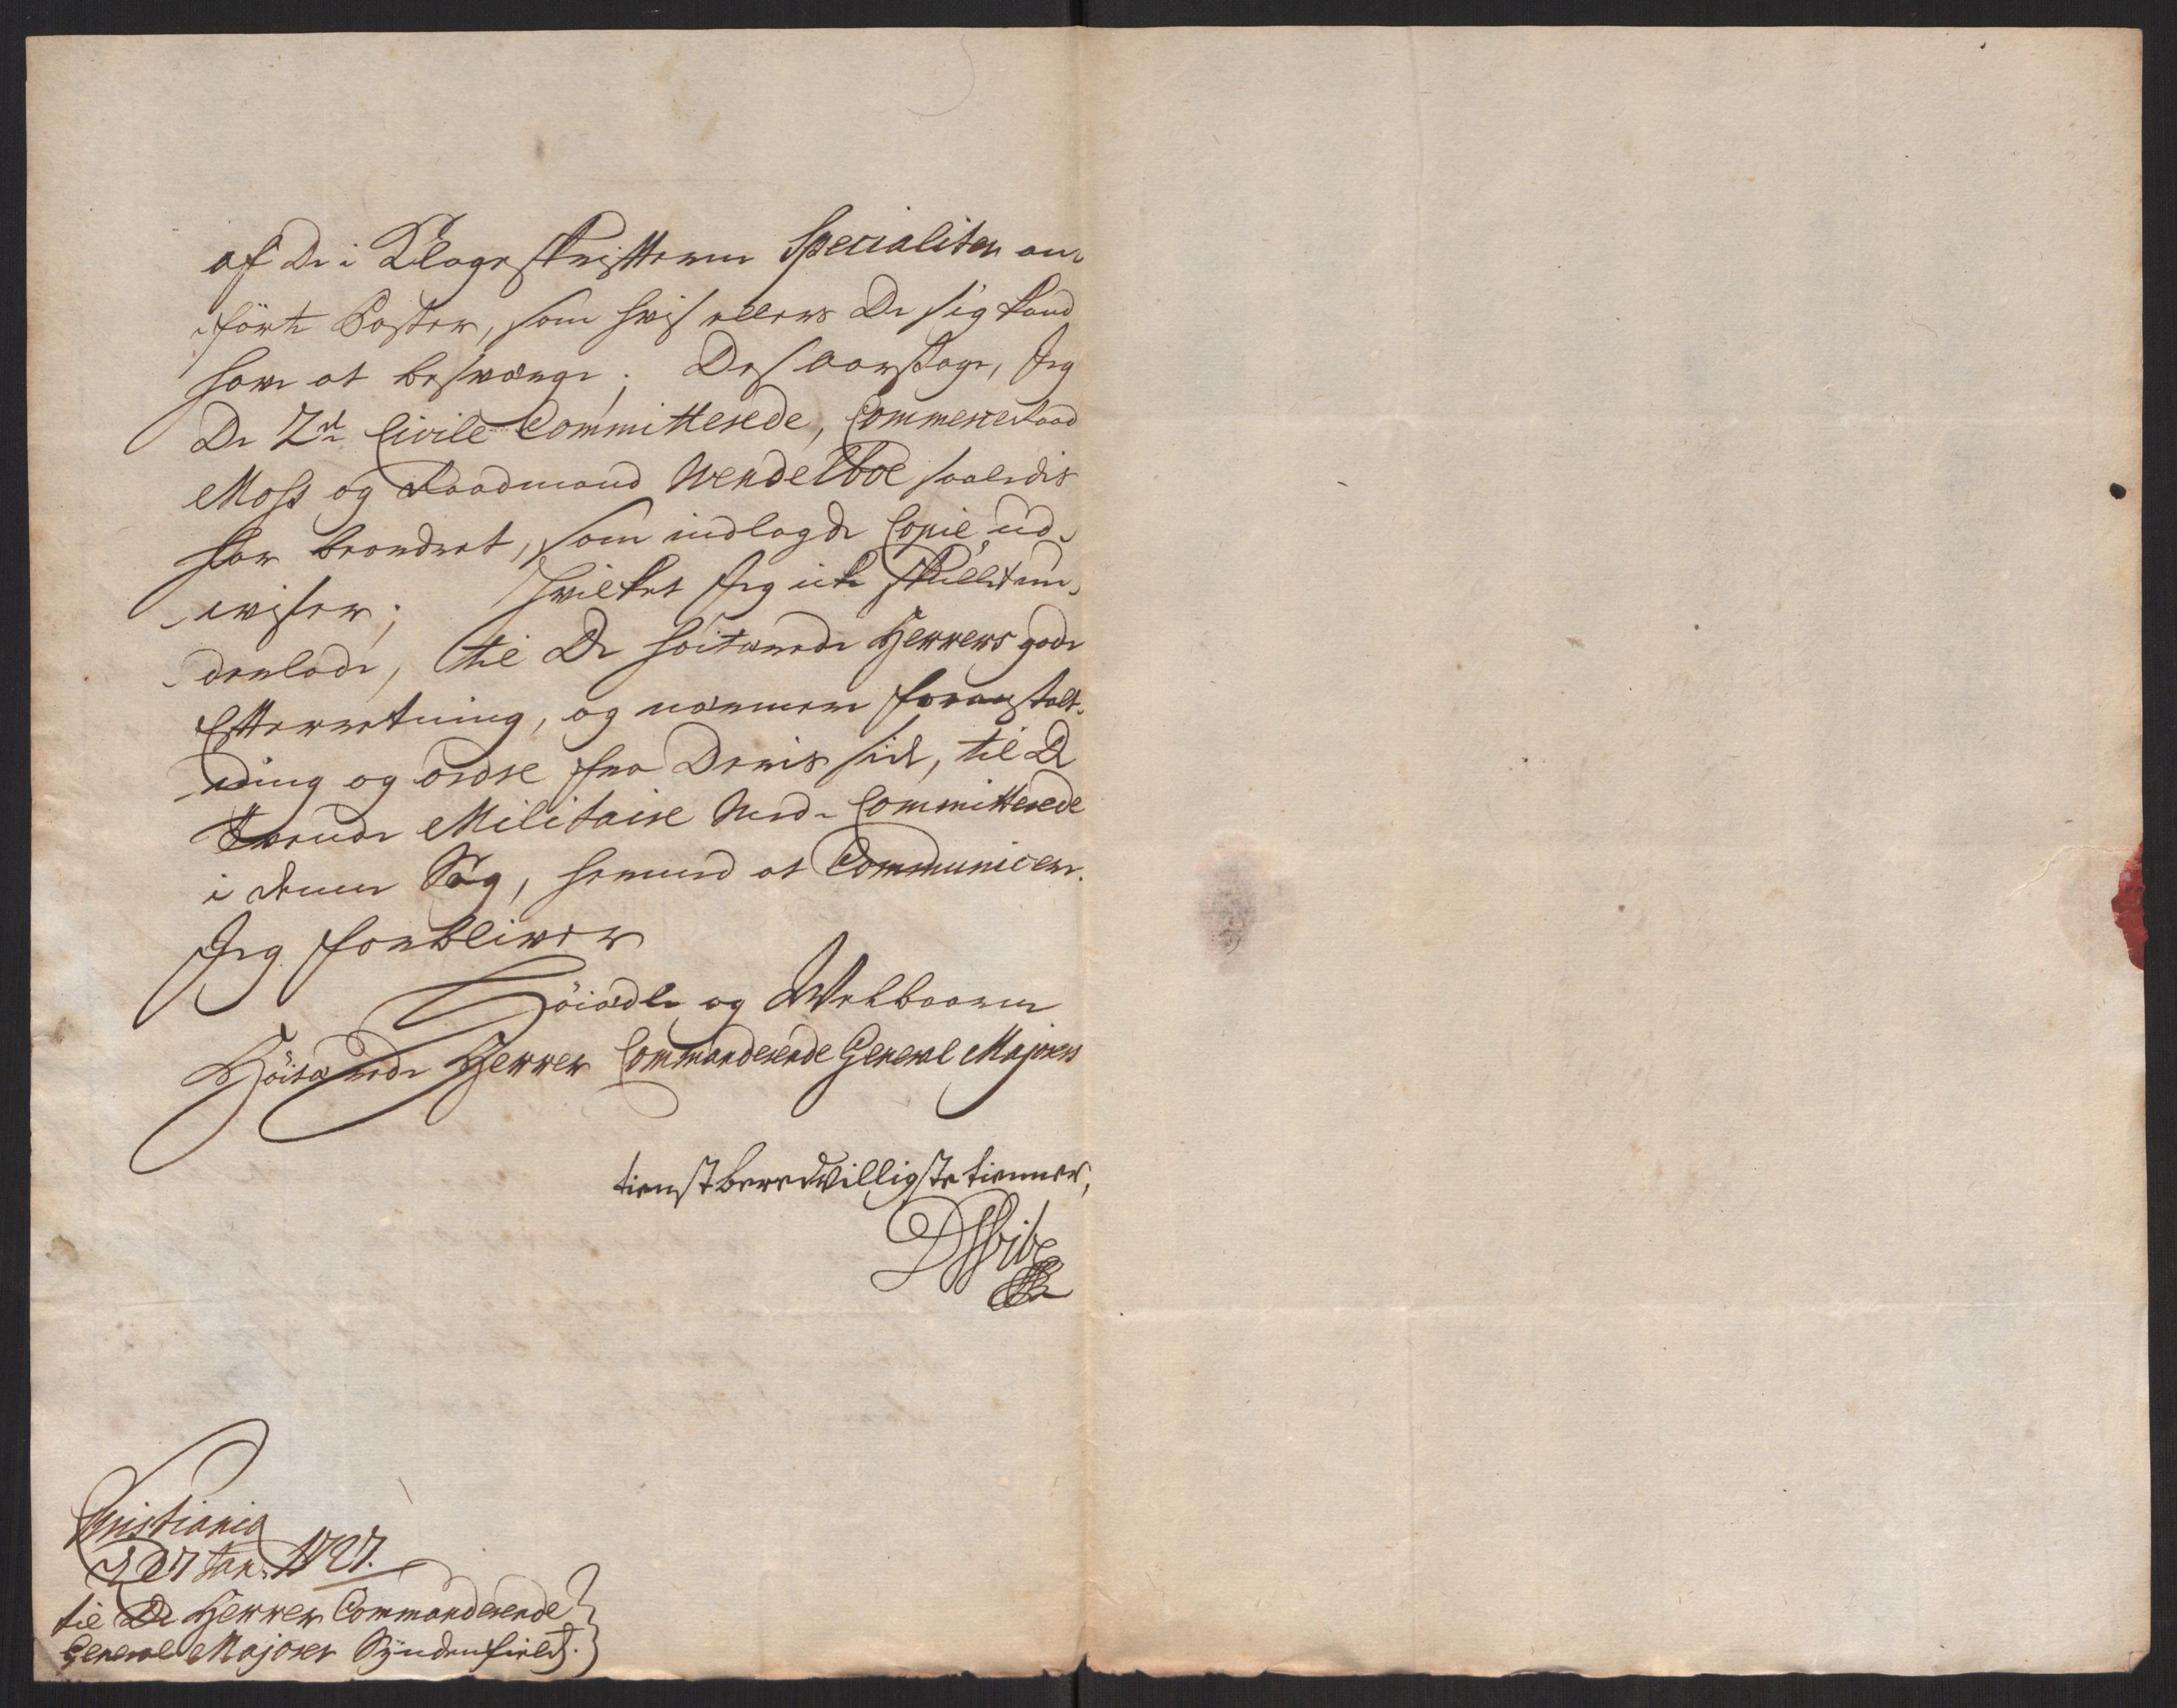 af De i Klageskrifterne Specialiter an-
förte Poster, som hvis ellers De sig kand
have at besværge; Des aarsage, Jeg
De 2de Civile Committerede, Commerceraad
Moss og Raadmand Wendelboe saaledis
har beordret, som indlagde Copie ud-
wiser; Hvilket Jeg icke skulle un-
derlade, til De höitærede Herrers gode
Efterretning, og nærmere foranstalt-
ning og ordre fra Deris side, til De
tvende Militaire Med-Committerede
i denne Sag, hermed at Communicere.
Jeg forbliver
Höiædle og Welbaarne
Höitærede Herrer Commanderende General Majorers
tienstberedvilligste tienner,
DVibe
Christiania
d 27 Jan: 1727.
til De Herrer Commanderende
General Majorer Syndenfields.